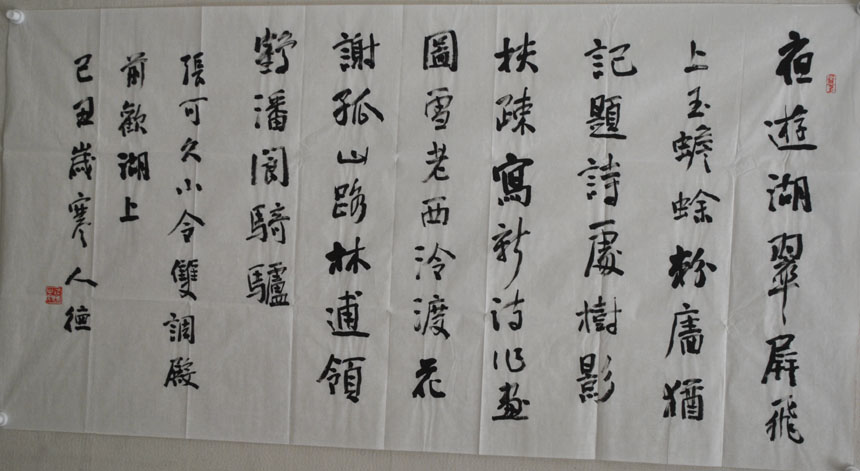 夜遊湖翠屏飛
上玉蟾蜍粉廧猶
記題詩處樹影
扶疎寫新诗作畫
圖雪老西泠渡花
謝孤山路林逋領
鶴潘閬騎驢
張可久小令雙調殿
前歡湖上
己丑歲寒人德